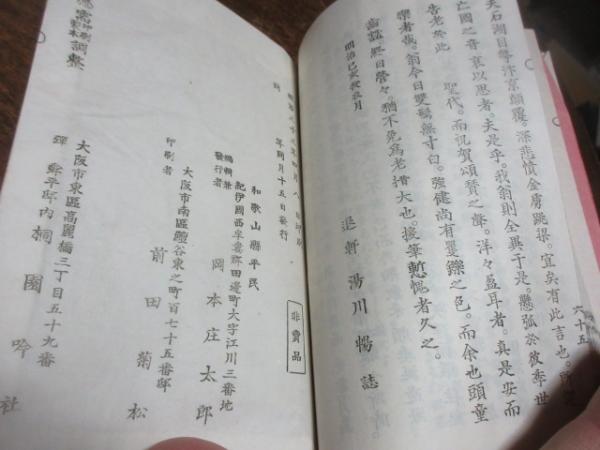 六十五
夫石湖目擊汴京顚覆。深悲憤金虜跳梁。宜矣有此言也。
亡國之音哀以思者。夫是乎。我翁則全異于是。懸弧於後季世
告老於此 聖代。而祝賀頌賛之聲。洋々盈耳者。眞是安而
樂者哉。翁今日雙鬢無寸白。強健尚有矍鑠之色。而余也頭童
齒豁。終日營々。猶不免爲老措大也。援筆慙愧者久之。
明治己亥 月
退軒 湯川暢誌
年四月八日印刷
年同月十五日發行
非賣品
和歌山縣平民
紀伊國西牟婁郡田邊町大字江川三番地
編輯兼
發行者 岡本庄太郎
大阪市南區鰻谷東之町百七十五番邸
印刷者 前田菊松
大阪市東區高麗橋三丁目五十九番
桐園吟社
印刷
製本
調整